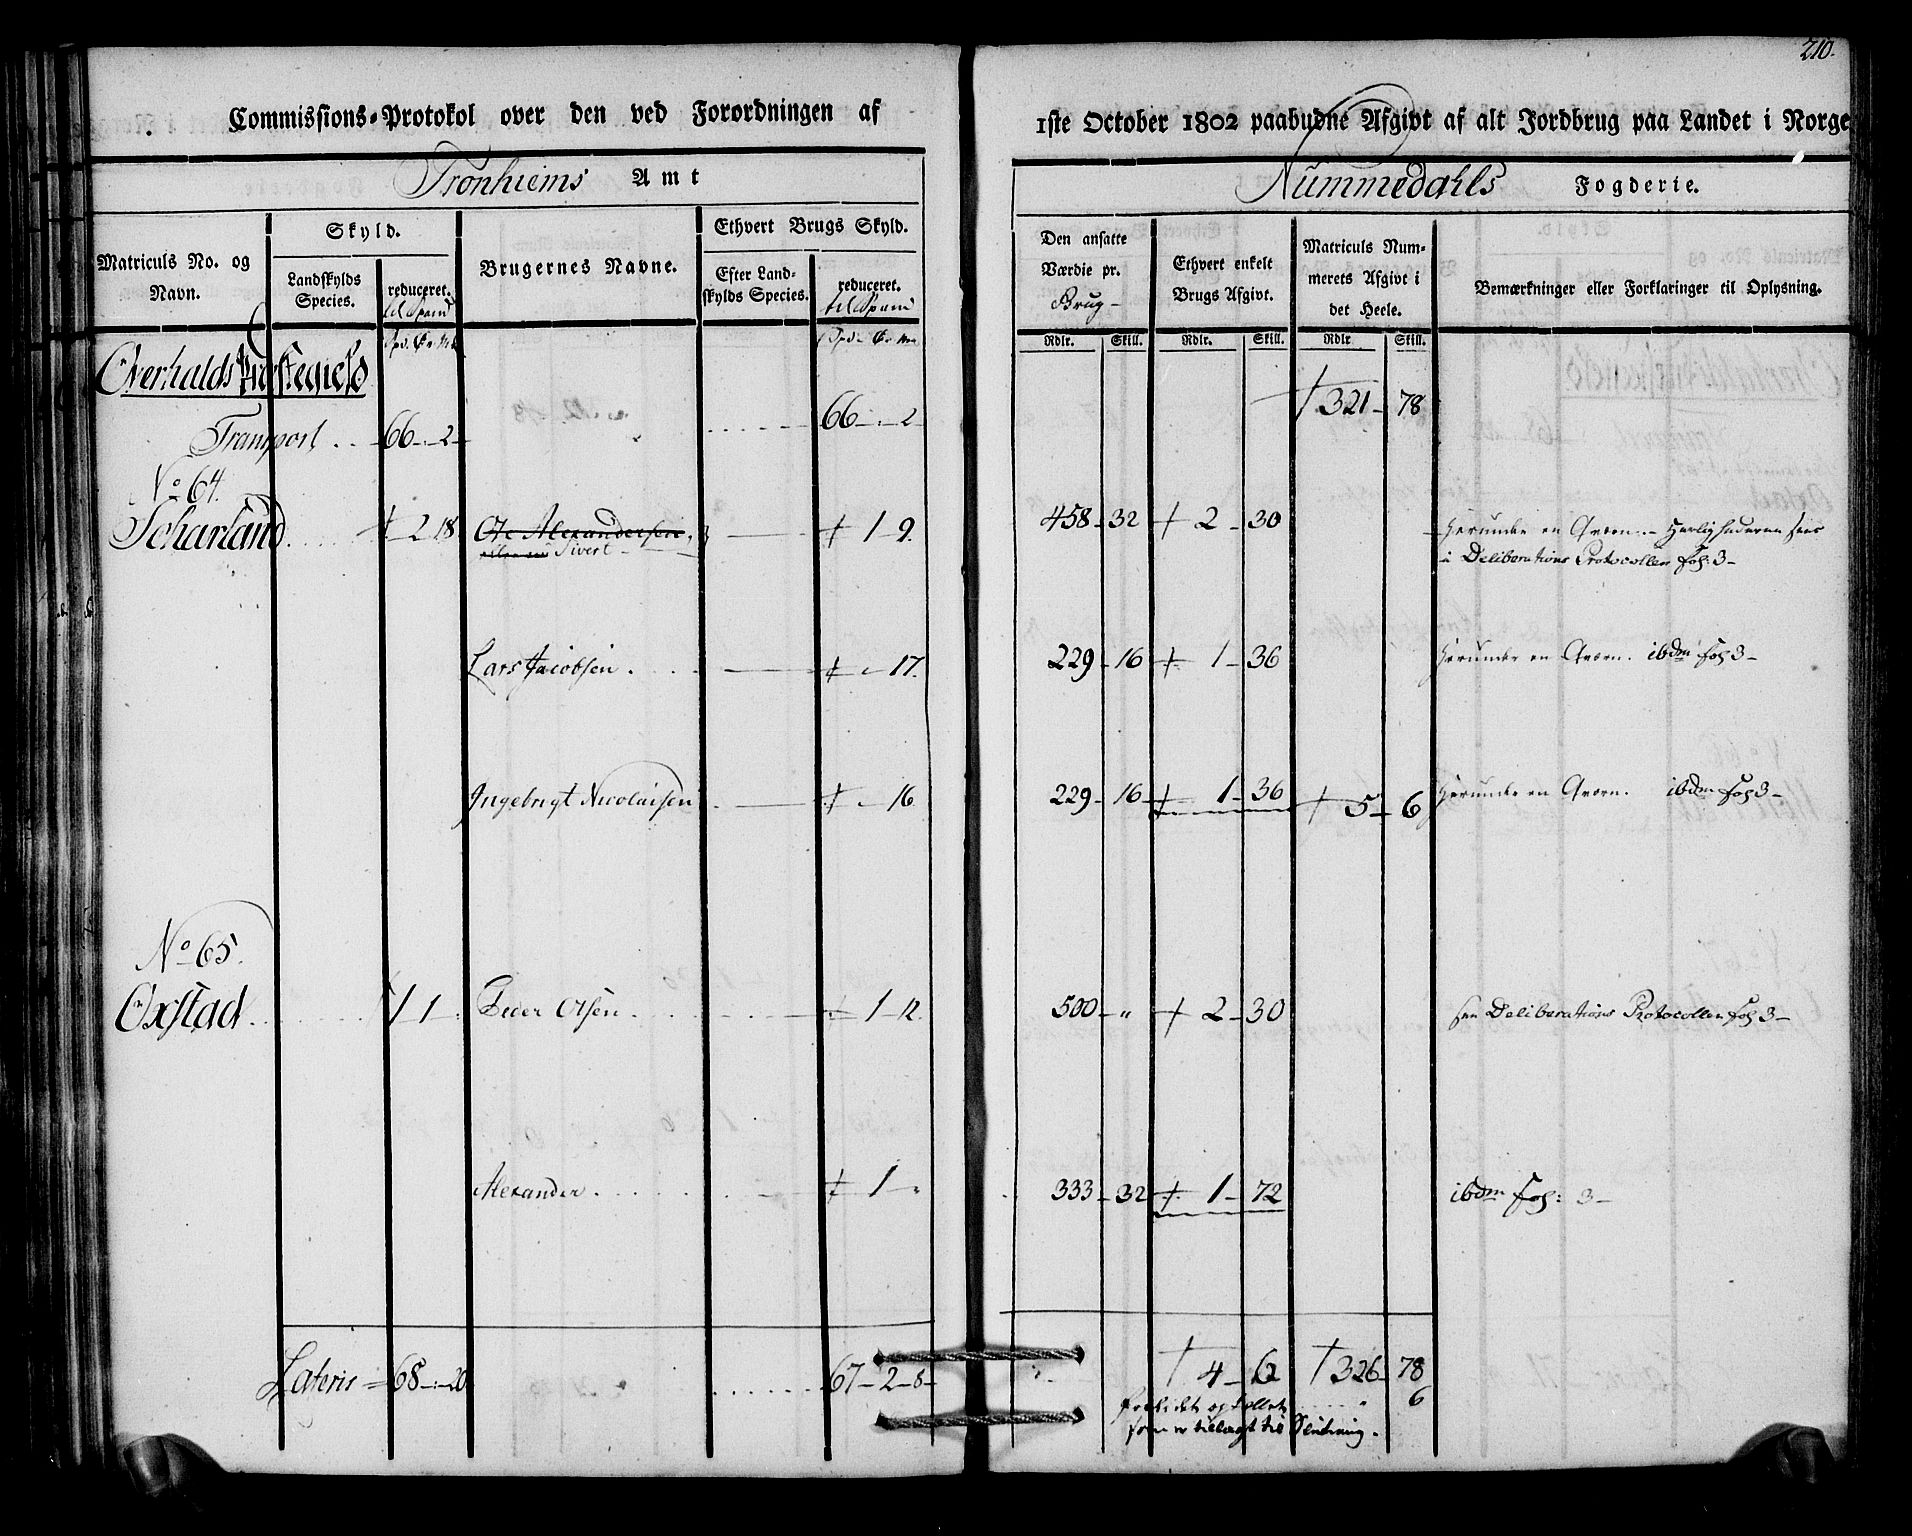 210.
Commissions-Protokol over den ved Forordningen af
1ste October 1802 paabudne Afgivt af alt Jordbrug paa Landet i Norge
Tronhiems Amt
Nummedahls Fogderie.
Matriculs No. og Navn.
Skyld.
Landskylds Species.
reduceret. til Spand
Brugernes Navne.
Ethvert Brugs Skyld.
Efter Landskylds Species.
reduceret. til Spand
Den ansatte Værdie pr. Brug
Ethvert enkelt Brugs Afgivt.
Matriculs Nummerets Afgivt i det Heele.
Bemærkninger eller Forklaringer til Oplysning.
Rdlr. Skill. Rdlr. Skill. Rdlr Skill.
Overhalds Præstegield
Transport .. 66 - 2 66 - 2 321 - 78
No 64.
Scharland 2 18 Ole Alexandersen 1 9. 458 - 32 2 - 30 Herunder en Qværn
Sivert i Deliberations Protocollen Fol: 3 -
Lars Jacobsen 17. 229 - 16 1 - 36 Herunder en Qværn. ibdm Fol 3 -
Ingebrigt Nicolaisen 16 229 - 16 1 - 36 5 - 6 Herunder en Qværn. ibdm Fol 3 -
No 65.
Oxstad 1 1 Peder Olsen 1 - 12. 500 - " 2 - 30 see Deliberations Protocollen Fol 3 -
Alexander 1 - " 333 - 32 1 - 72 ibdm Fol: 3 -
Lateris = 68 - 20 67 - 2 - 8 - 4 - 6 326 - 78
6
som er tillagt til Slutning.